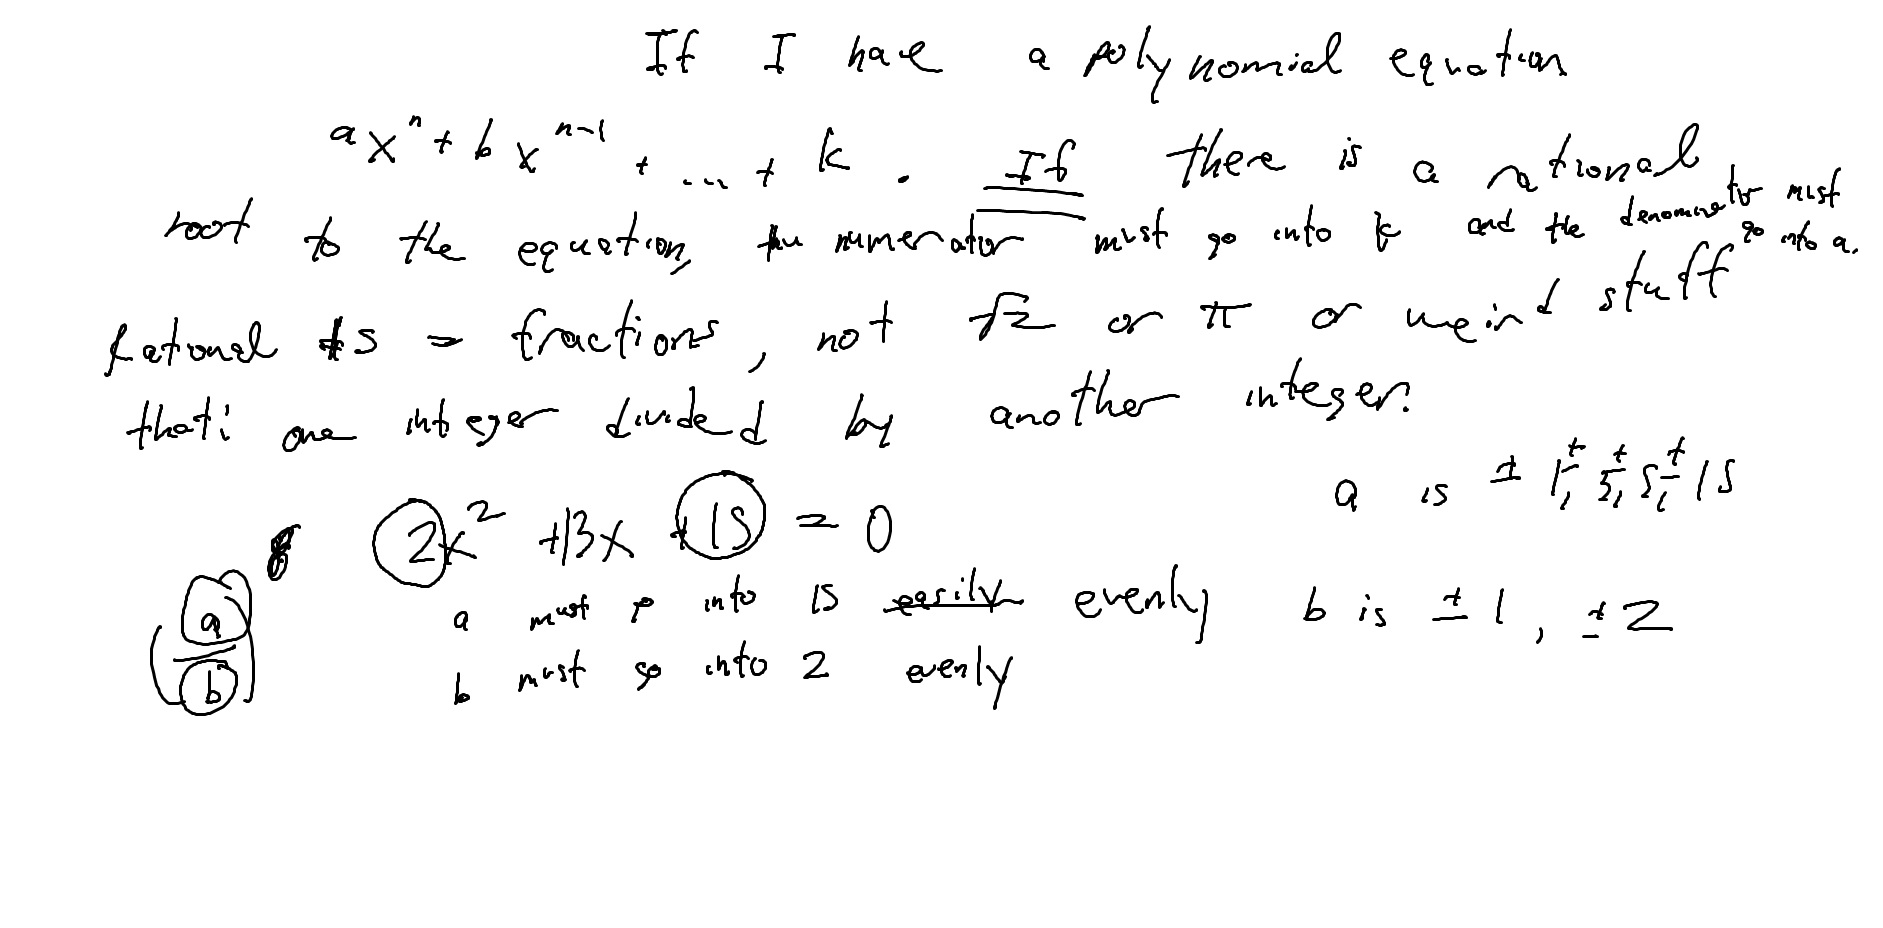 If I have a polynomial equation
ax^n + bx^(n-1) + ... + k . If there is a rational
root to the equation, the numerator must go into k and the denominator must go into a.
Rational #s = fractions, not √2 or π or weird stuff
that: one integer divided by another integer.
a is ± 1, ± 3, ± 5, ± 15
2x² +13x +15 = 0
a must go into 15 easily evenly b is ± 1, ± 2
(a/b) b must go into 2 evenly